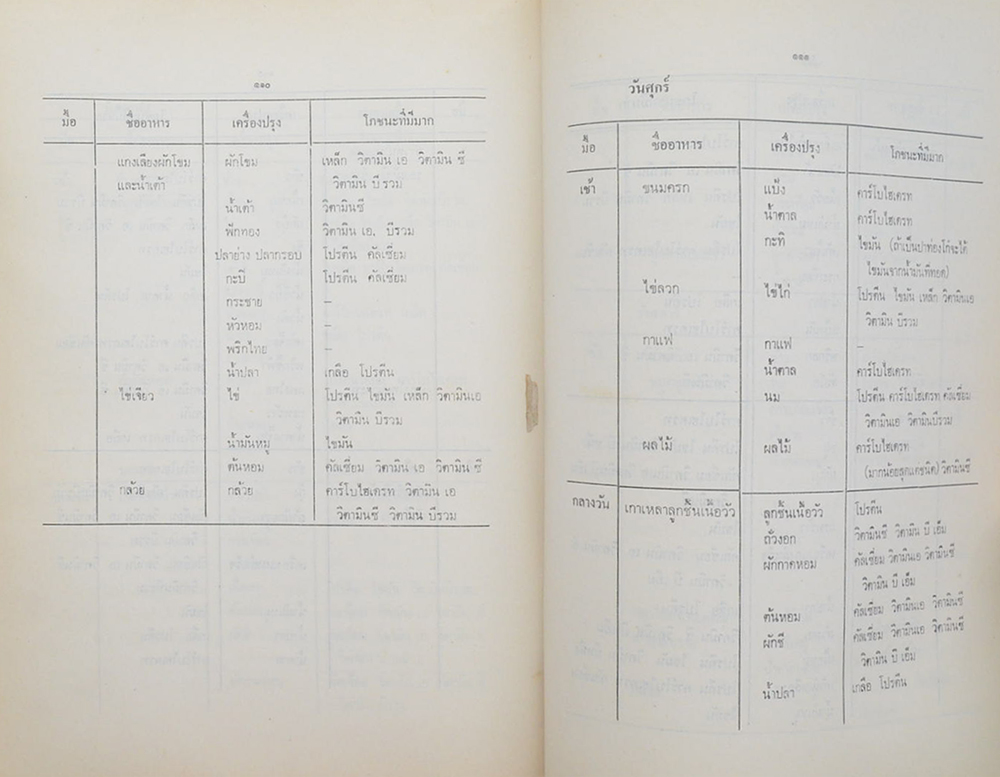 ๑๑๐
มื้อ ชื่ออาหาร เครื่องปรุง โภชนะที่มีมาก
แกงเลียงผักโขม ผักโขม เหล็ก วิตามิน เอ วิตามิน ซี
และน้ำเต้า วิตามิน บีรวม
น้ำเต้า วิตามินซี
ฟักทอง วิตามิน เอ. บีรวม
ปลาย่าง ปลากรอบ โปรตีน คัลเซี่ยม
กะปิ โปรตีน คัลเซี่ยม
กระชาย –
หัวหอม –
พริกไทย –
น้ำปลา เกลือ โปรตีน
ไข่เจียว ไข่ โปรตีน ไขมัน เหล็ก วิตามินเอ
วิตามิน บีรวม
น้ำมันหมู ไขมัน
ต้นหอม คัลเซี่ยม วิตามิน เอ วิตามิน ซี
กล้วย กล้วย คาร์โบไฮเดรท วิตามิน เอ
วิตามินซี วิตามิน บีรวม
๑๑๑
วันศุกร์
มื้อ ชื่ออาหาร เครื่องปรุง โภชนะที่มีมาก
เช้า ขนมครก แป้ง คาร์โบไฮเดรท
น้ำตาล คาร์โบไฮเดรท
กะทิ ไขมัน (ถ้าเป็นปาท่องโก๋จะได้
ไขมันจากน้ำมันที่ทอด)
ไข่ลวก ไข่ไก่ โปรตีน ไขมัน เหล็ก วิตามินเอ
วิตามิน บีรวม
กาแฟ กาแฟ –
น้ำตาล คาร์โบไฮเดรท
นม โปรตีน คาร์โบไฮเดรท คัลเซี่ยม
วิตามินเอ วิตามินบีรวม
ผลไม้ ผลไม้ คาร์โบไฮเดรท
(มากน้อยสุดแต่ชนิด) วิตามินซี
กลางวัน เกาเหลาลูกชิ้นเนื้อวัว ลูกชิ้นเนื้อวัว โปรตีน
ถั่วงอก วิตามินซี วิตามิน บี เอ็ม
ผักกาดหอม คัลเซี่ยม วิตามินเอ วิตามินซี
วิตามิน บี เอ็ม
ต้นหอม คัลเซี่ยม วิตามินเอ วิตามินซี
ผักชี คัลเซี่ยม วิตามินเอ วิตามินซี
วิตามิน บี เอ็ม
น้ำปลา เกลือ โปรตีน